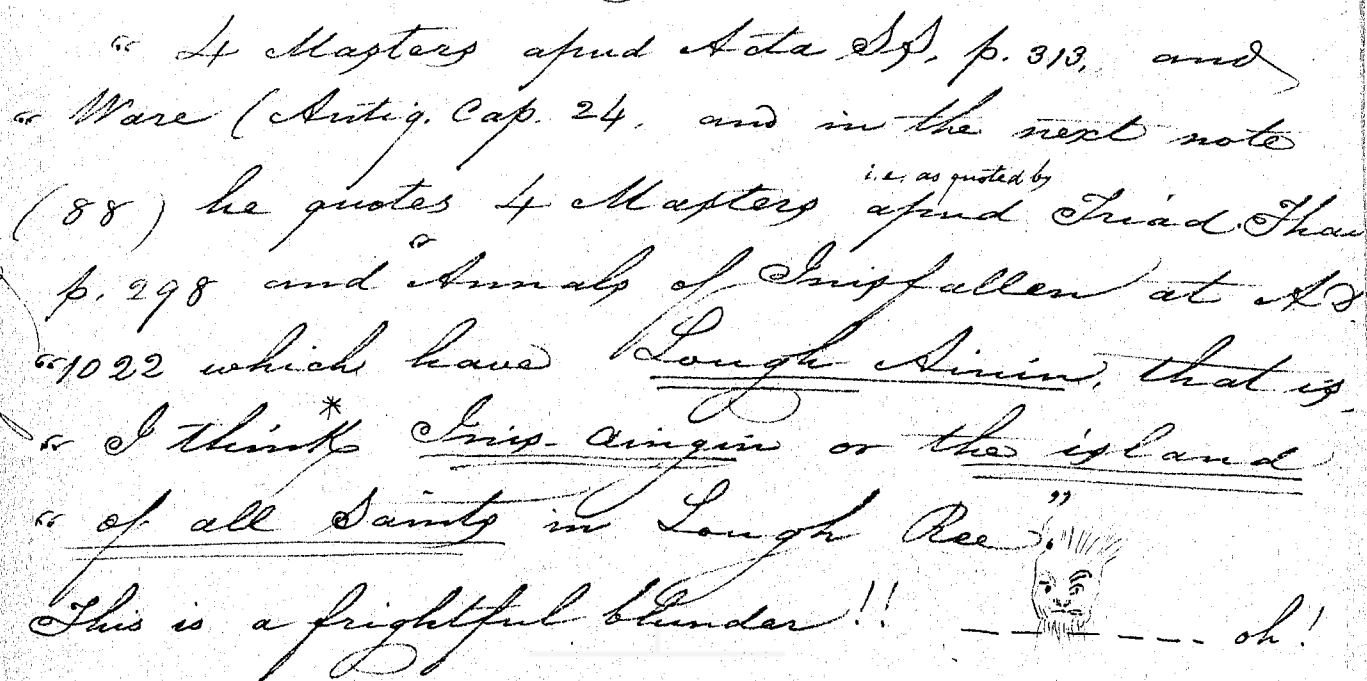 “ 4 Masters apud Acta SS. p. 313, and
“ Ware (Antiq. Cap. 24. and in the next note
i.e. as quoted by
(88) he quotes 4 Masters apud Triad. Thau
p. 298 and “Annals of Inisfallen at A.D.
“1022 which have Lough Ainin, that is,
“ I think* Inis-aingin or the island
“ of all Saints in Lough Ree”.
This is a frightful blunder!! – – – – – – oh!